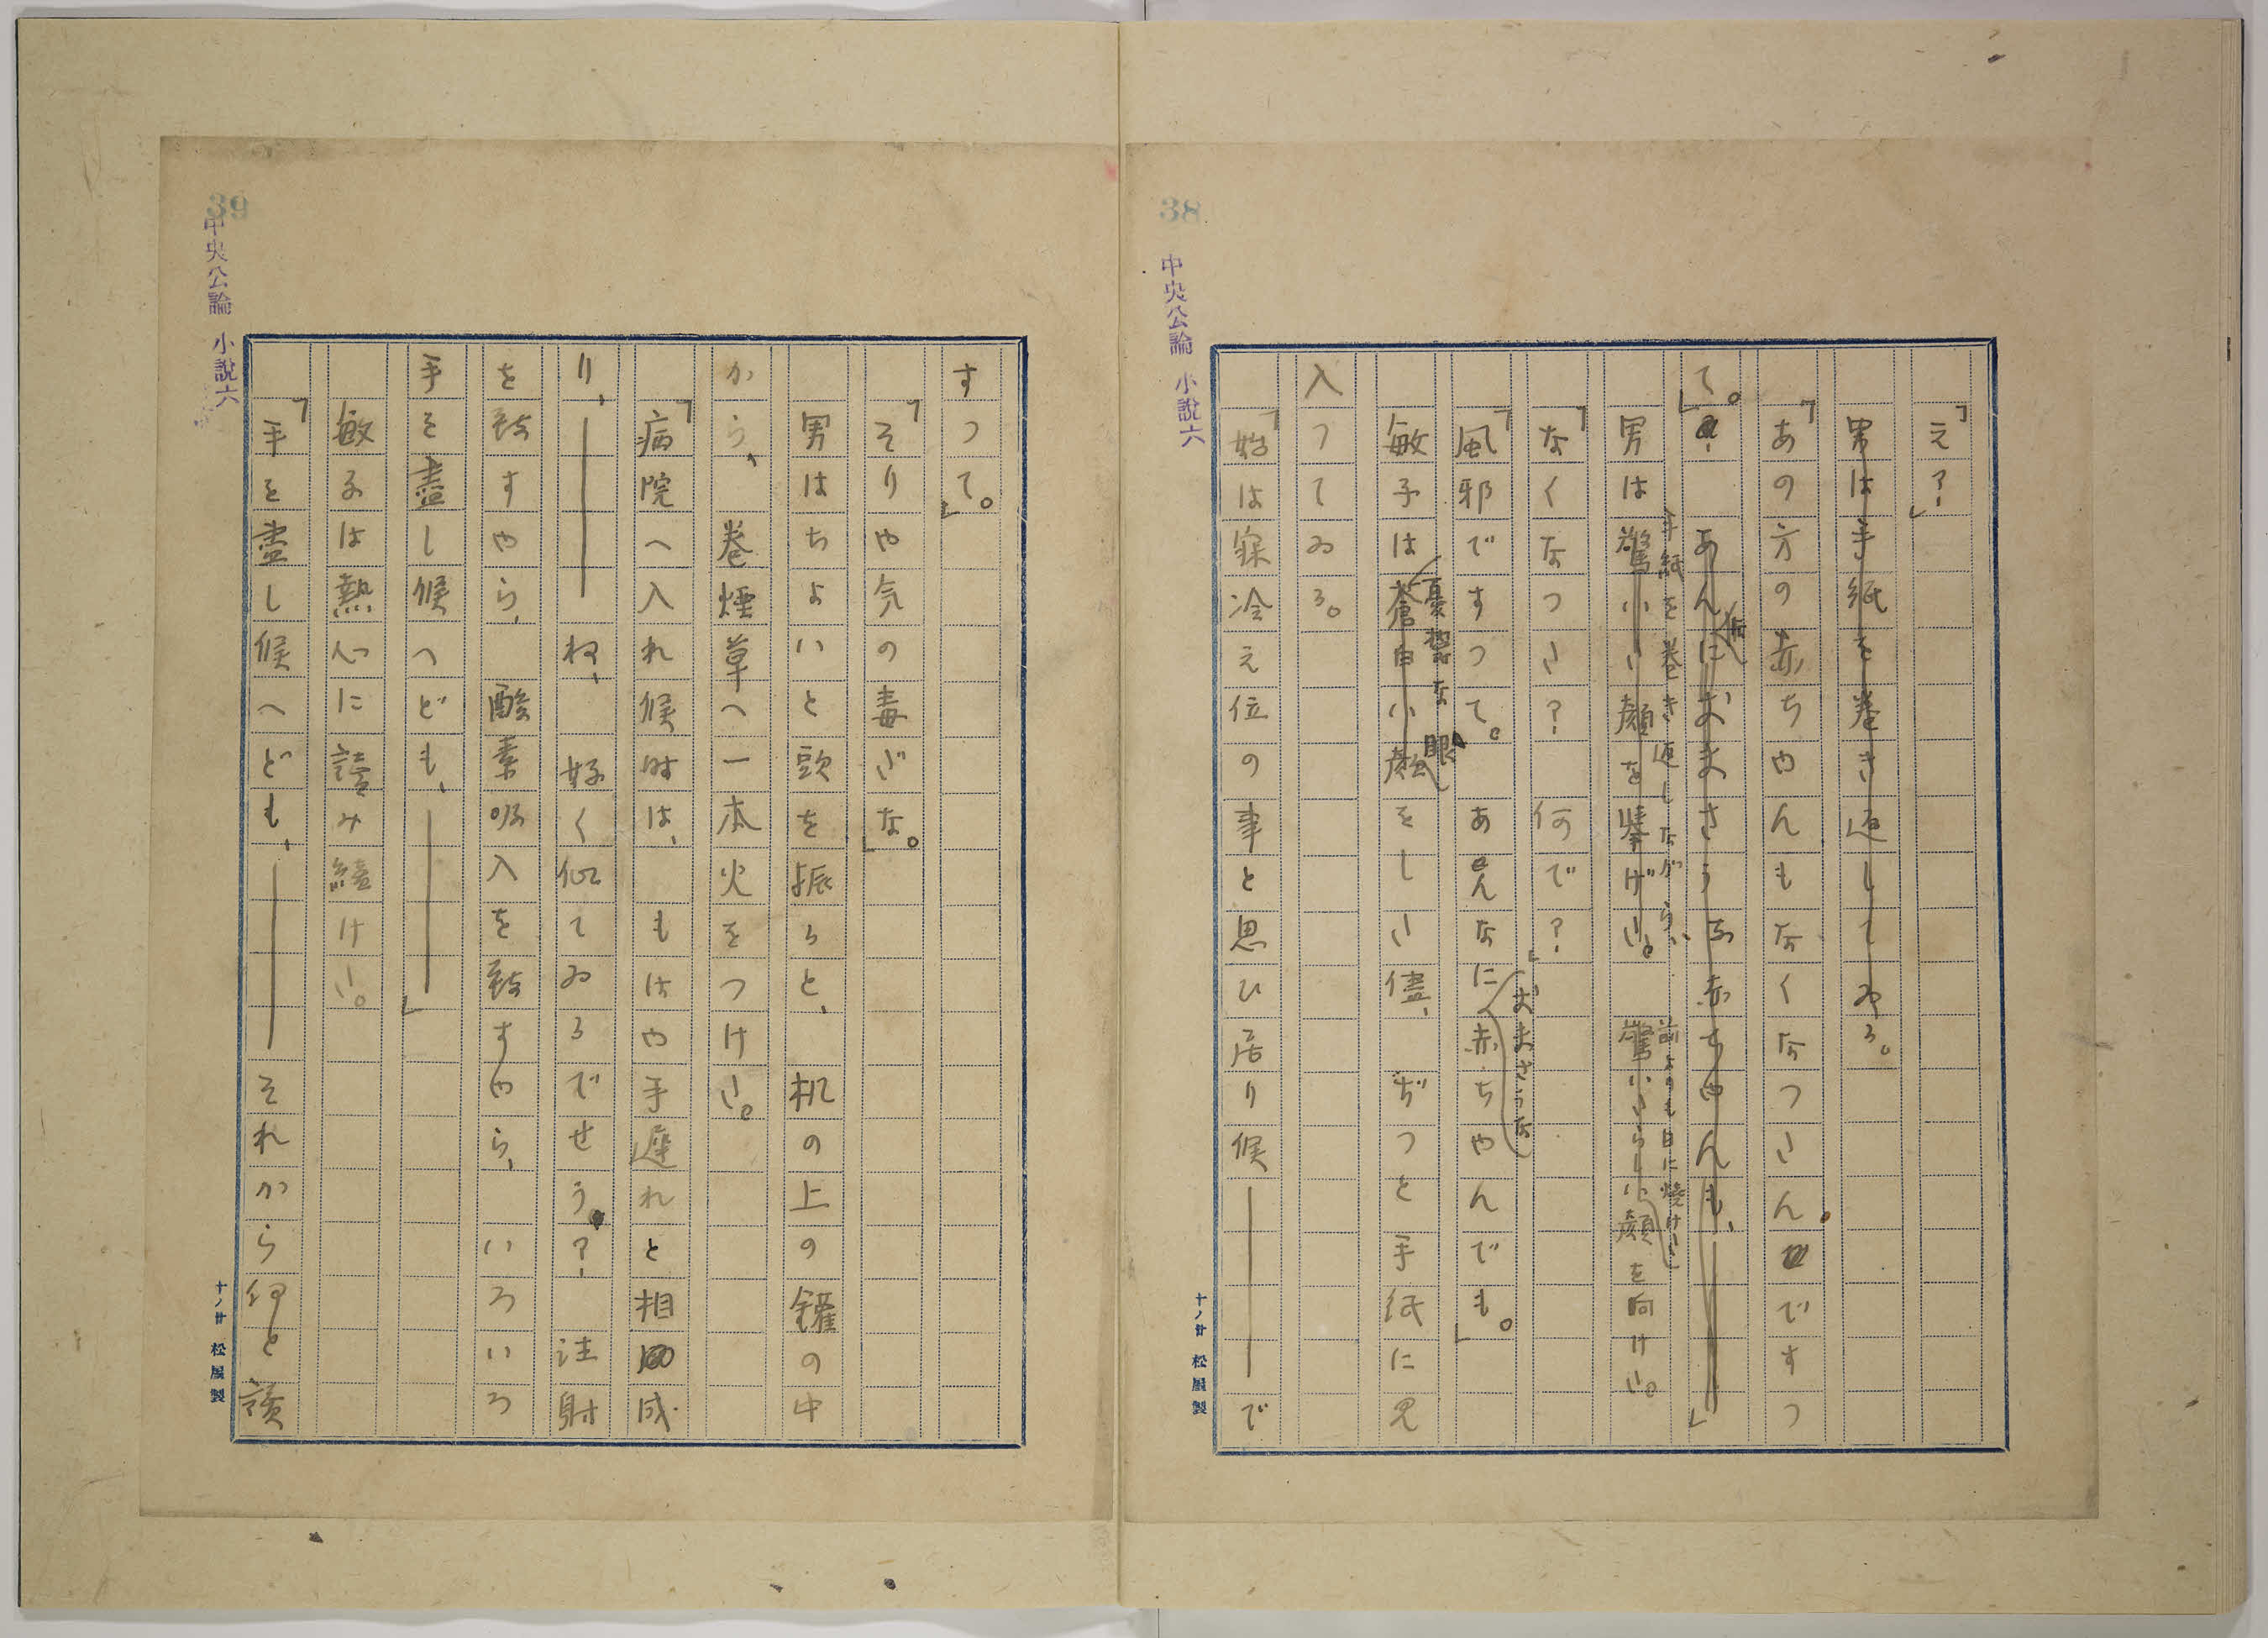 38
中央公論 小説六
「え?」
男は手紙を巻き返してゐる。
「あの方の赤ちやんもなくなつたんですつ
て。」 あんなにおまさうな赤ちやんも、――」
手紙を巻き返しながら、
前よりも日に焼けた
男は驚いた顔を挙げた。 驚いたらしい顔を向けた。
「なくなつた? 何で?」
おまさうな
「風邪ですつて。 あんなに赤ちやんでも。」
憂鬱な眼
敏子は蒼白い顔をした儘、ぢつと手紙に見
入つてゐる。
「始は寝冷え位の事と思ひ居り候――で
十ノ廿 松屋製
39
中央公論 小説六
すつて。」
「そりや気の毒だな。」
男はちよいと頭を振ると、 机の上の鑵の中
から、 巻煙草へ一本火をつけた。
「病院へ入れ候時は、 もはや手遅れと相成
り、―― ね、 好く似てゐるでせう。? 注射
を致すやら、 酸素吸入を致すやら、 いろいろ
手を盡し候へども、――」
敏子は熱心に讀み續けた。
「手を盡し候へども、――それから何と讀
十ノ廿 松屋製